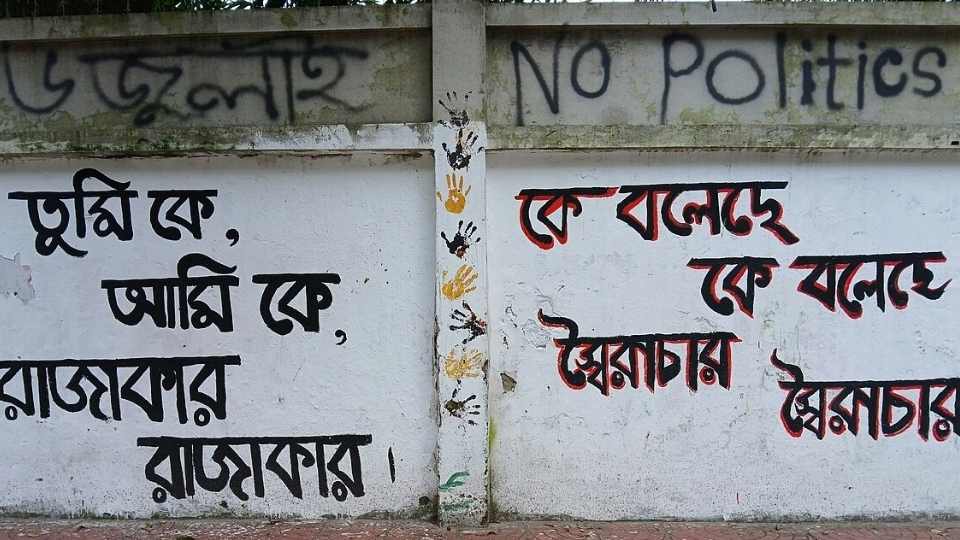 জুলাই
No Politics
তুমি কে,
আমি কে,
রাজাকার
রাজাকার।
কে বলেছে
কে বলেছে
স্বৈরাচার
স্বৈরাচার